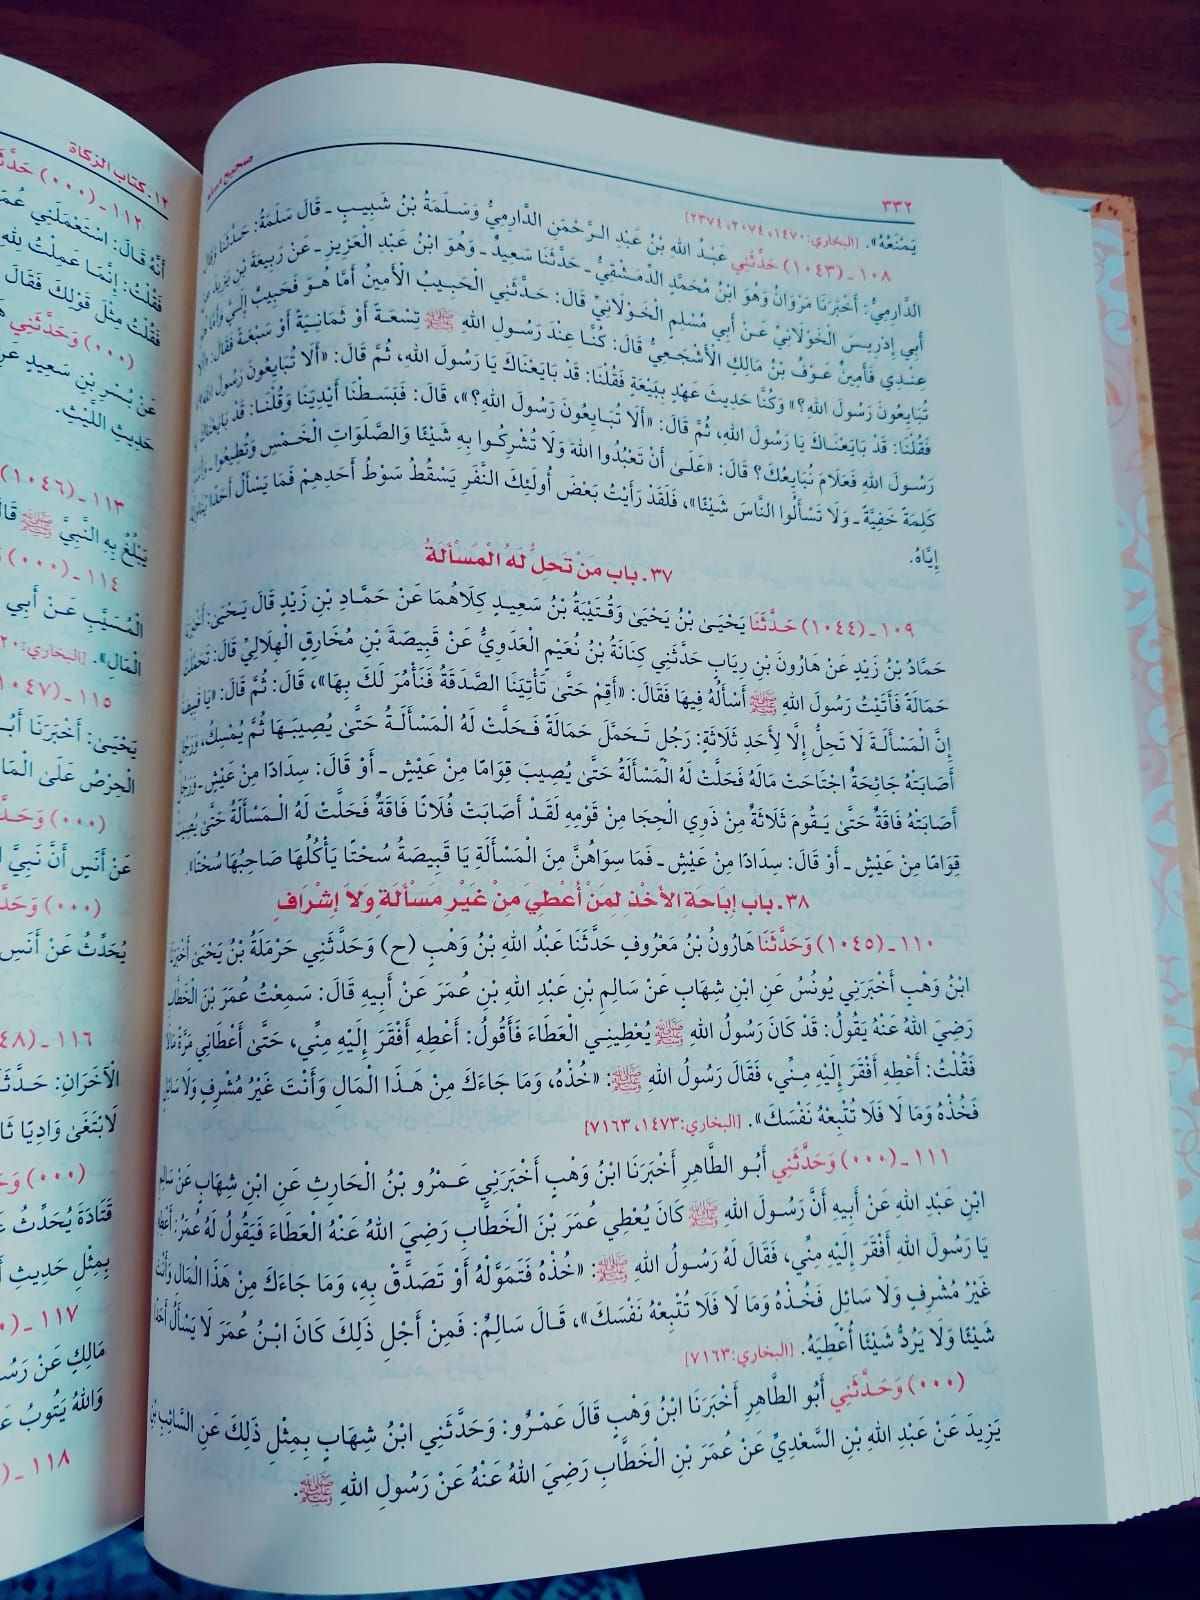 ٣٣٢
صحيح مسلم
يَمْنَعْهُ». [البخاري:١٤٧٠، ٢٠٧٤، ٢٣٧٤]
١٠٨ ـ (١٠٤٣) حَدَّثَنِي عَبْدُ اللهِ بْنُ عَبْدِ الرَّحْمَنِ الدَّارِمِيُّ وَسَلَمَةُ بْنُ شَبِيبٍ ـ قَالَ سَلَمَةُ: حَدَّثَنَا وَقَالَ
الدَّارِمِيُّ: أَخْبَرَنَا مَرْوَانُ وَهُوَ ابْنُ مُحَمَّدٍ الدِّمَشْقِيُّ ـ حَدَّثَنَا سَعِيدٌ ـ وَهُوَ ابْنُ عَبْدِ الْعَزِيزِ ـ عَنْ رَبِيعَةَ بْنِ يَزِيدَ عَنْ
أَبِي إِدْرِيسَ الْخَوْلَانِيِّ عَنْ أَبِي مُسْلِمٍ الْخَوْلَانِيِّ قَالَ: حَدَّثَنِي الْحَبِيبُ الْأَمِينُ أَمَّا هُوَ فَحَبِيبٌ إِلَيَّ وَأَمَّا هُوَ
عِنْدِي فَأَمِينٌ عَوْفُ بْنُ مَالِكٍ الْأَشْجَعِيُّ قَالَ: كُنَّا عِنْدَ رَسُولِ اللهِ ﷺ تِسْعَةً أَوْ ثَمَانِيَةً أَوْ سَبْعَةً فَقَالَ: «أَلَا
تُبَايِعُونَ رَسُولَ اللهِ؟» وَكُنَّا حَدِيثَ عَهْدٍ بِبَيْعَةٍ فَقُلْنَا: قَدْ بَايَعْنَاكَ يَا رَسُولَ اللهِ، ثُمَّ قَالَ: «أَلَا تُبَايِعُونَ رَسُولَ اللهِ؟»
فَقُلْنَا: قَدْ بَايَعْنَاكَ يَا رَسُولَ اللهِ، ثُمَّ قَالَ: «أَلَا تُبَايِعُونَ رَسُولَ اللهِ؟»، قَالَ: فَبَسَطْنَا أَيْدِيَنَا وَقُلْنَا: قَدْ بَايَعْنَاكَ يَا
رَسُولَ اللهِ فَعَلَامَ نُبَايِعُكَ؟ قَالَ: «عَلَىٰ أَنْ تَعْبُدُوا اللهَ وَلَا تُشْرِكُوا بِهِ شَيْئًا وَالصَّلَوَاتِ الْخَمْسِ وَتُطِيعُوا ـ وَأَسَرَّ
كَلِمَةً خَفِيَّةً ـ وَلَا تَسْأَلُوا النَّاسَ شَيْئًا»، فَلَقَدْ رَأَيْتُ بَعْضَ أُولَئِكَ النَّفَرِ يَسْقُطُ سَوْطُ أَحَدِهِمْ فَمَا يَسْأَلُ أَحَدًا يُنَاوِلُهُ
إِيَّاهُ.
٣٧ ـ باب مَنْ تَحِلُّ لَهُ الْمَسْأَلَةُ
١٠٩ ـ (١٠٤٤) حَدَّثَنَا يَحْيَىٰ بْنُ يَحْيَىٰ وَقُتَيْبَةُ بْنُ سَعِيدٍ كِلَاهُمَا عَنْ حَمَّادِ بْنِ زَيْدٍ قَالَ يَحْيَىٰ: أَخْبَرَنَا
حَمَّادُ بْنُ زَيْدٍ عَنْ هَارُونَ بْنِ رِيَابٍ حَدَّثَنِي كِنَانَةُ بْنُ نُعَيْمٍ الْعَدَوِيُّ عَنْ قَبِيصَةَ بْنِ مُخَارِقٍ الْهِلَالِيِّ قَالَ: تَحَمَّلْتُ
حَمَالَةً فَأَتَيْتُ رَسُولَ اللهِ ﷺ أَسْأَلُهُ فِيهَا فَقَالَ: «أَقِمْ حَتَّىٰ تَأْتِيَنَا الصَّدَقَةُ فَنَأْمُرَ لَكَ بِهَا»، قَالَ: ثُمَّ قَالَ: «يَا قَبِيصَةُ
إِنَّ الْمَسْأَلَةَ لَا تَحِلُّ إِلَّا لِأَحَدِ ثَلَاثَةٍ: رَجُلٍ تَحَمَّلَ حَمَالَةً فَحَلَّتْ لَهُ الْمَسْأَلَةُ حَتَّىٰ يُصِيبَهَا ثُمَّ يُمْسِكُ، وَرَجُلٍ
أَصَابَتْهُ جَائِحَةٌ اجْتَاحَتْ مَالَهُ فَحَلَّتْ لَهُ الْمَسْأَلَةُ حَتَّىٰ يُصِيبَ قِوَامًا مِنْ عَيْشٍ ـ أَوْ قَالَ: سِدَادًا مِنْ عَيْشٍ ـ وَرَجُلٍ
أَصَابَتْهُ فَاقَةٌ حَتَّىٰ يَقُومَ ثَلَاثَةٌ مِنْ ذَوِي الْحِجَا مِنْ قَوْمِهِ لَقَدْ أَصَابَتْ فُلَانًا فَاقَةٌ فَحَلَّتْ لَهُ الْمَسْأَلَةُ حَتَّىٰ يُصِيبَ
قِوَامًا مِنْ عَيْشٍ ـ أَوْ قَالَ: سِدَادًا مِنْ عَيْشٍ ـ فَمَا سِوَاهُنَّ مِنَ الْمَسْأَلَةِ يَا قَبِيصَةُ سُحْتًا يَأْكُلُهَا صَاحِبُهَا سُحْتًا».
٣٨ ـ باب إِبَاحَةِ الأَخْذِ لِمَنْ أُعْطِيَ مِنْ غَيْرِ مَسْأَلَةٍ وَلاَ إِشْرَافٍ
١١٠ ـ (١٠٤٥) وَحَدَّثَنَا هَارُونُ بْنُ مَعْرُوفٍ حَدَّثَنَا عَبْدُ اللهِ بْنُ وَهْبٍ (ح) وَحَدَّثَنِي حَرْمَلَةُ بْنُ يَحْيَىٰ أَخْبَرَنَا
ابْنُ وَهْبٍ أَخْبَرَنِي يُونُسُ عَنِ ابْنِ شِهَابٍ عَنْ سَالِمِ بْنِ عَبْدِ اللهِ بْنِ عُمَرَ عَنْ أَبِيهِ قَالَ: سَمِعْتُ عُمَرَ بْنَ الْخَطَّابِ
رَضِيَ اللهُ عَنْهُ يَقُولُ: قَدْ كَانَ رَسُولُ اللهِ ﷺ يُعْطِينِي الْعَطَاءَ فَأَقُولُ: أَعْطِهِ أَفْقَرَ إِلَيْهِ مِنِّي، حَتَّىٰ أَعْطَانِي مَرَّةً مَالًا
فَقُلْتُ: أَعْطِهِ أَفْقَرَ إِلَيْهِ مِنِّي، فَقَالَ رَسُولُ اللهِ ﷺ: «خُذْهُ، وَمَا جَاءَكَ مِنْ هَذَا الْمَالِ وَأَنْتَ غَيْرُ مُشْرِفٍ وَلَا سَائِلٍ
فَخُذْهُ وَمَا لَا فَلَا تُتْبِعْهُ نَفْسَكَ». [البخاري:١٤٧٣، ٧١٦٣]
١١١ ـ (٠٠٠) وَحَدَّثَنِي أَبُو الطَّاهِرِ أَخْبَرَنَا ابْنُ وَهْبٍ أَخْبَرَنِي عَمْرُو بْنُ الْحَارِثِ عَنِ ابْنِ شِهَابٍ عَنْ سَالِمِ
ابْنِ عَبْدِ اللهِ عَنْ أَبِيهِ أَنَّ رَسُولَ اللهِ ﷺ كَانَ يُعْطِي عُمَرَ بْنَ الْخَطَّابِ رَضِيَ اللهُ عَنْهُ الْعَطَاءَ فَيَقُولُ لَهُ عُمَرُ: أَعْطِهِ
يَا رَسُولَ اللهِ أَفْقَرَ إِلَيْهِ مِنِّي، فَقَالَ لَهُ رَسُولُ اللهِ ﷺ: «خُذْهُ فَتَمَوَّلْهُ أَوْ تَصَدَّقْ بِهِ، وَمَا جَاءَكَ مِنْ هَذَا الْمَالِ وَأَنْتَ
غَيْرُ مُشْرِفٍ وَلَا سَائِلٍ فَخُذْهُ وَمَا لَا فَلَا تُتْبِعْهُ نَفْسَكَ»، قَالَ سَالِمٌ: فَمِنْ أَجْلِ ذَلِكَ كَانَ ابْنُ عُمَرَ لَا يَسْأَلُ أَحَدًا
شَيْئًا وَلَا يَرُدُّ شَيْئًا أُعْطِيَهُ. [البخاري:٧١٦٣]
(٠٠٠) وَحَدَّثَنِي أَبُو الطَّاهِرِ أَخْبَرَنَا ابْنُ وَهْبٍ قَالَ عَمْرٌو: وَحَدَّثَنِي ابْنُ شِهَابٍ بِمِثْلِ ذَلِكَ عَنِ السَّائِبِ بْنِ
يَزِيدَ عَنْ عَبْدِ اللهِ بْنِ السَّعْدِيِّ عَنْ عُمَرَ بْنِ الْخَطَّابِ رَضِيَ اللهُ عَنْهُ عَنْ رَسُولِ اللهِ ﷺ.
١٢ ـ كتاب الزكاة
١١٢ ـ (٠٠٠)
أَنَّهُ قَالَ: اسْتَعْمَلَنِي
فَقُلْتُ: إِنَّمَا عَمِلْتُ لِلهِ
فَقُلْتُ مِثْلَ قَوْلِكَ فَقَالَ
(٠٠٠) وَحَدَّثَنِي
عَنْ بُسْرِ بْنِ سَعِيدٍ عَنِ
حَدِيثِ اللَّيْثِ.
١١٣ ـ (١٠٤٦)
يَبْلُغُ بِهِ النَّبِيَّ ﷺ
١١٤ ـ (٠٠٠)
الْمُسَيَّبِ عَنْ أَبِي
الْمَالِ». [البخاري:
١١٥ ـ (١٠٤٧)
يَحْيَىٰ: أَخْبَرَنَا
الْحِرْصُ عَلَىٰ
(٠٠٠)
عَنْ أَنَسٍ أَنَّ نَبِيَّ
(٠٠٠)
يُحَدِّثُ عَنْ أَنَسِ
١١٦ ـ
الْآخَرَانِ:
لَابْتَغَىٰ وَادِيًا
(٠٠٠)
قَتَادَةَ يُحَدِّثُ
بِمِثْلِ حَدِيثِ
١١٧ ـ
مَالِكٍ عَنْ
وَاللهُ يَتُوبُ
١١٨ ـ